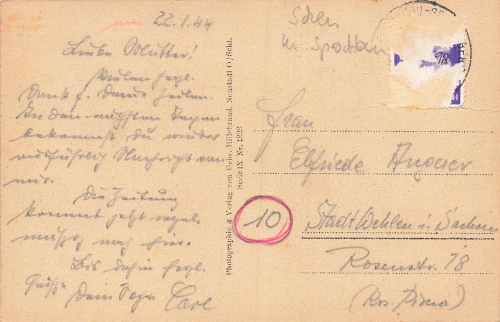 22.1.44
Liebe Mutter!
Vielen herzl.
Dank f. Deine Zeilen.
In den nächsten Tagen
bekommst Du wieder
ausführlich Nachricht von
mir.
Die Zeitung
kommt jetzt regel-
mäßig nach hier.
Bis dahin herzl.
Grüße
Dein Carl
Photographie & Verlag von Gebr. Hillebrand, Neustadt O/Schl.
Serie IX Nr. 1929
Frau
Elfriede
10
Stadt Wehlen i. Sachsen
Rosenstr. 78
(Krs. Pirna)